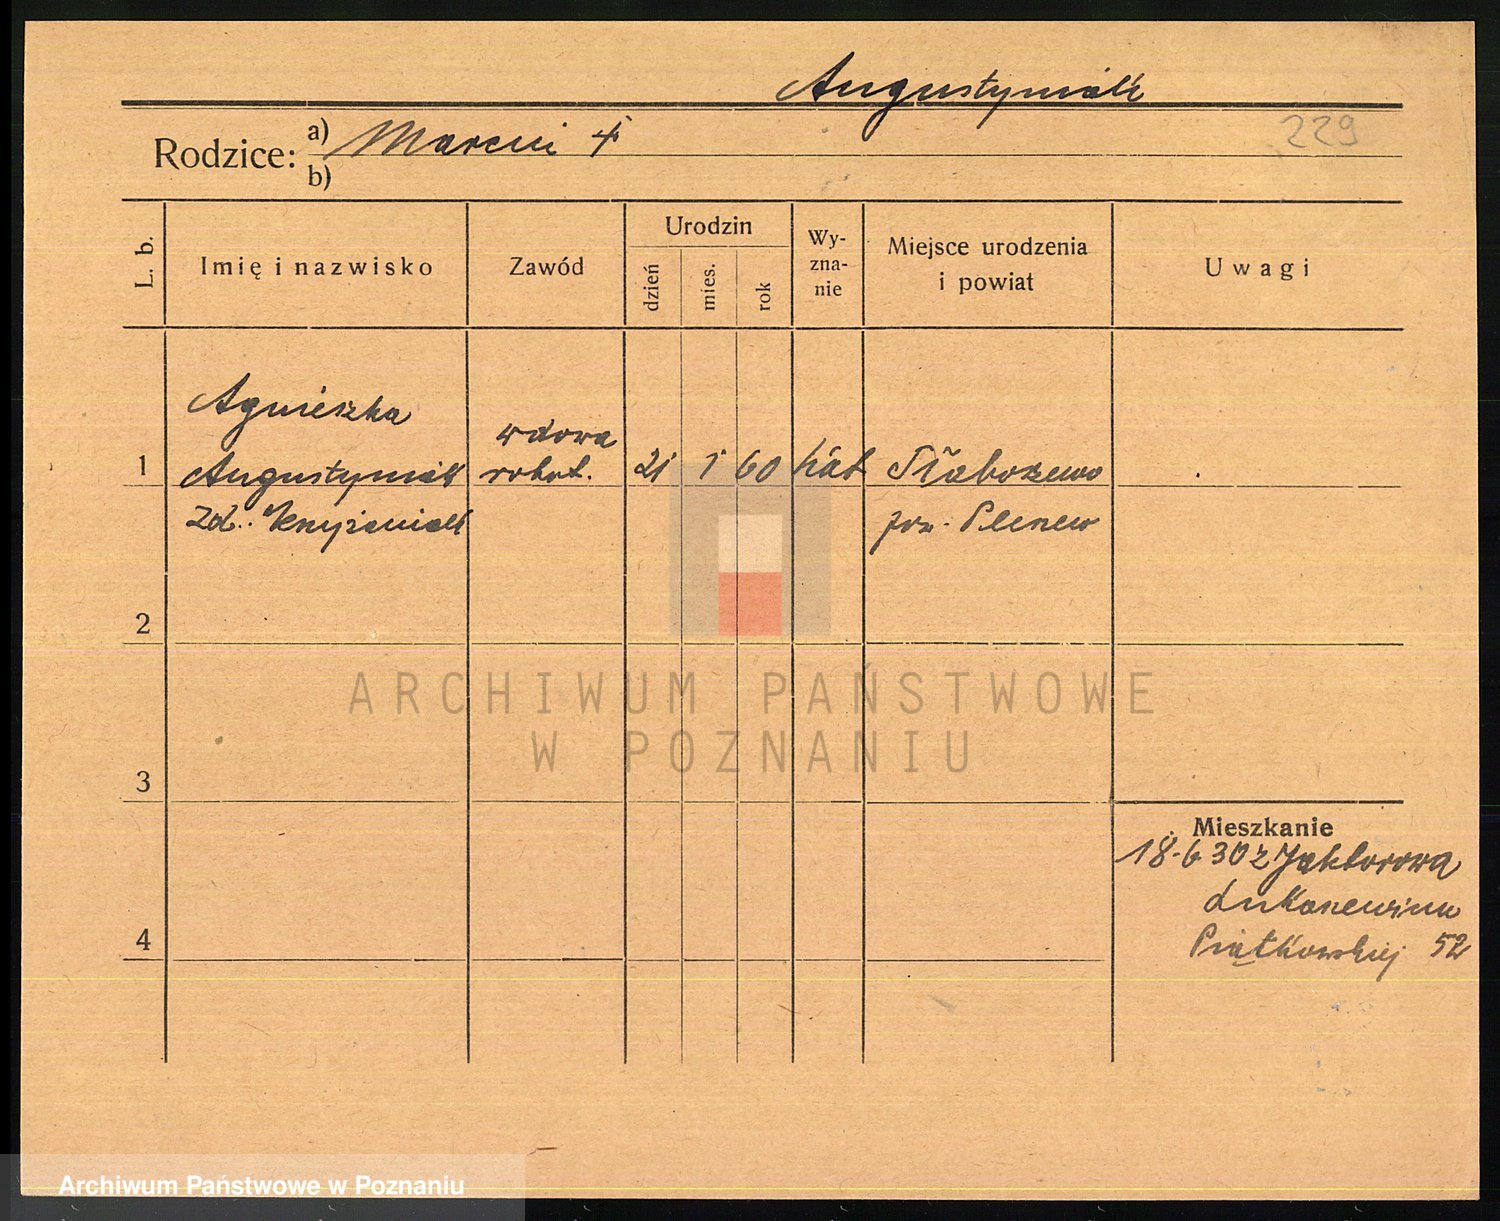 Augustyniak
229
Rodzice: a) Marcin
b)
L. b.
Imię i nazwisko
Zawód
Urodzin
dzień
mies.
rok
Wy-
zna-
nie
Miejsce urodzenia
i powiat
Uwagi
Agnieszka
wdowa
1 Augustyniak robot. 21 1 60 kat
zd.
pow.
2
3
4
Mieszkanie
18.6 30 z
Piątkowskiej 52
ARCHIWUM PAŃSTWOWE
W POZNANIU
Archiwum Państwowe w Poznaniu